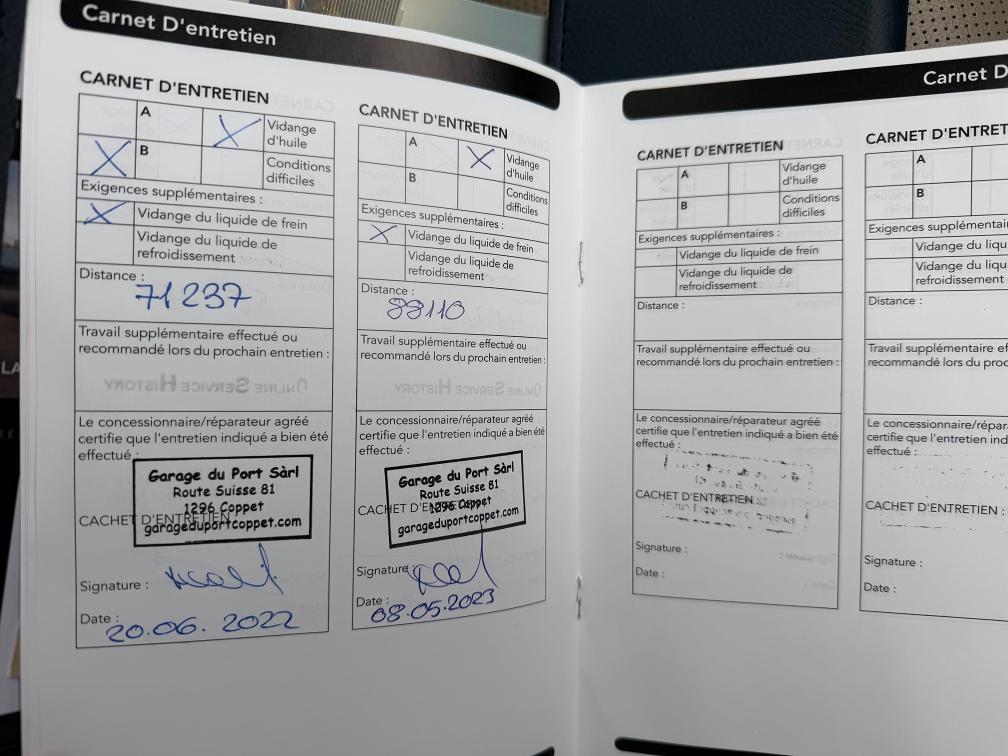 Carnet D'entretien
CARNET D'ENTRETIEN
A
Vidange
d'huile
B
Conditions
difficiles
Exigences supplémentaires :
Vidange du liquide de frein
Vidange du liquide de
refroidissement
Distance :
71237
Travail supplémentaire effectué ou
recommandé lors du prochain entretien :
Le concessionnaire/réparateur agréé
certifie que l'entretien indiqué a bien été
effectué :
Garage du Port Sàrl
Route Suisse 81
1296 Coppet
CACHET D'ENTRETIEN
garageduportcoppet.com
Signature :
Date :
20.06. 2022
CARNET D'ENTRETIEN
A
Vidange
d'huile
B
Conditions
difficiles
Exigences supplémentaires :
Vidange du liquide de frein
Vidange du liquide de
refroidissement
Distance :
88110
Travail supplémentaire effectué ou
recommandé lors du prochain entretien :
Le concessionnaire/réparateur agréé
certifie que l'entretien indiqué a bien été
effectué :
Garage du Port Sàrl
Route Suisse 81
1296 Coppet
CACHET D'ENTRETIEN
garageduportcoppet.com
Signature
Date :
08.05.2023
Carnet D
CARNET D'ENTRETIEN
A
Vidange
d'huile
B
Conditions
difficiles
Exigences supplémentaires :
Vidange du liquide de frein
Vidange du liquide de
refroidissement
Distance :
Travail supplémentaire effectué ou
recommandé lors du prochain entretien :
Le concessionnaire/réparateur agréé
certifie que l'entretien indiqué a bien été
effectué :
CACHET D'ENTRETIEN
Signature :
Date :
CARNET D'ENTRET
A
B
Exigences supplémentai
Vidange du liqu
Vidange du liqu
refroidissement
Distance :
Travail supplémentaire ef
recommandé lors du proc
Le concessionnaire/répara
certifie que l'entretien ind
effectué :
CACHET D'ENTRETIEN :
Signature :
Date :